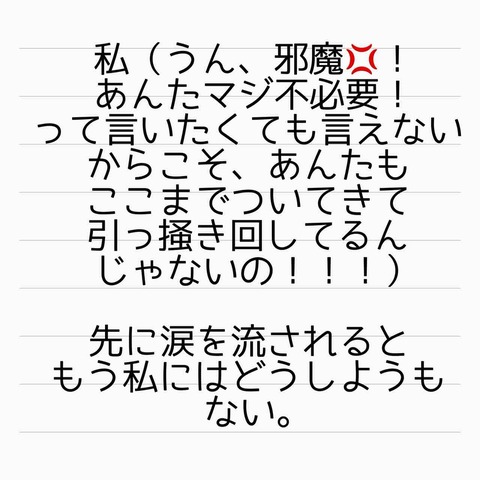 私（うん、邪魔💢！
あんたマジ不必要！
って言いたくても言えない
からこそ、あんたも
ここまでついてきて
引っ掻き回してるん
じゃないの！！！）
先に涙を流されると
もう私にはどうしようも
ない。